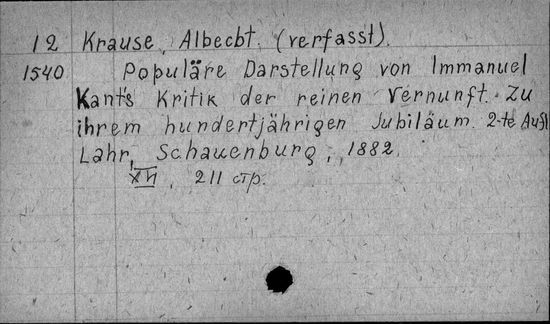 12 Krause, Albecbt. (verfasst).
1540 Populäre Darstellung von Immanuel
Kant's Kritik der reinen Vernunft. Zu
ihrem hundertjährigen Jubiläum. 2-te Aufl
Lahr, Schauenburg, 1882.
XII, 211 стр.